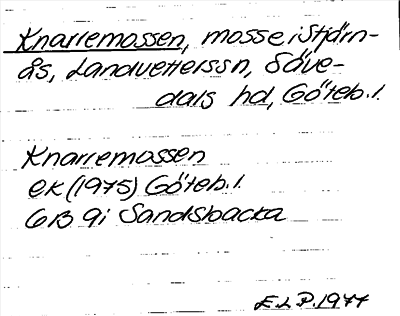 Knarremossen, mosse i Stjärn-
ås, Landvetterssn, Säve-
dals hd, Göteb. l.
Knarremossen
ek (1975) Göteb. l.
6B 9i Sandsbacka
E L P. 1977